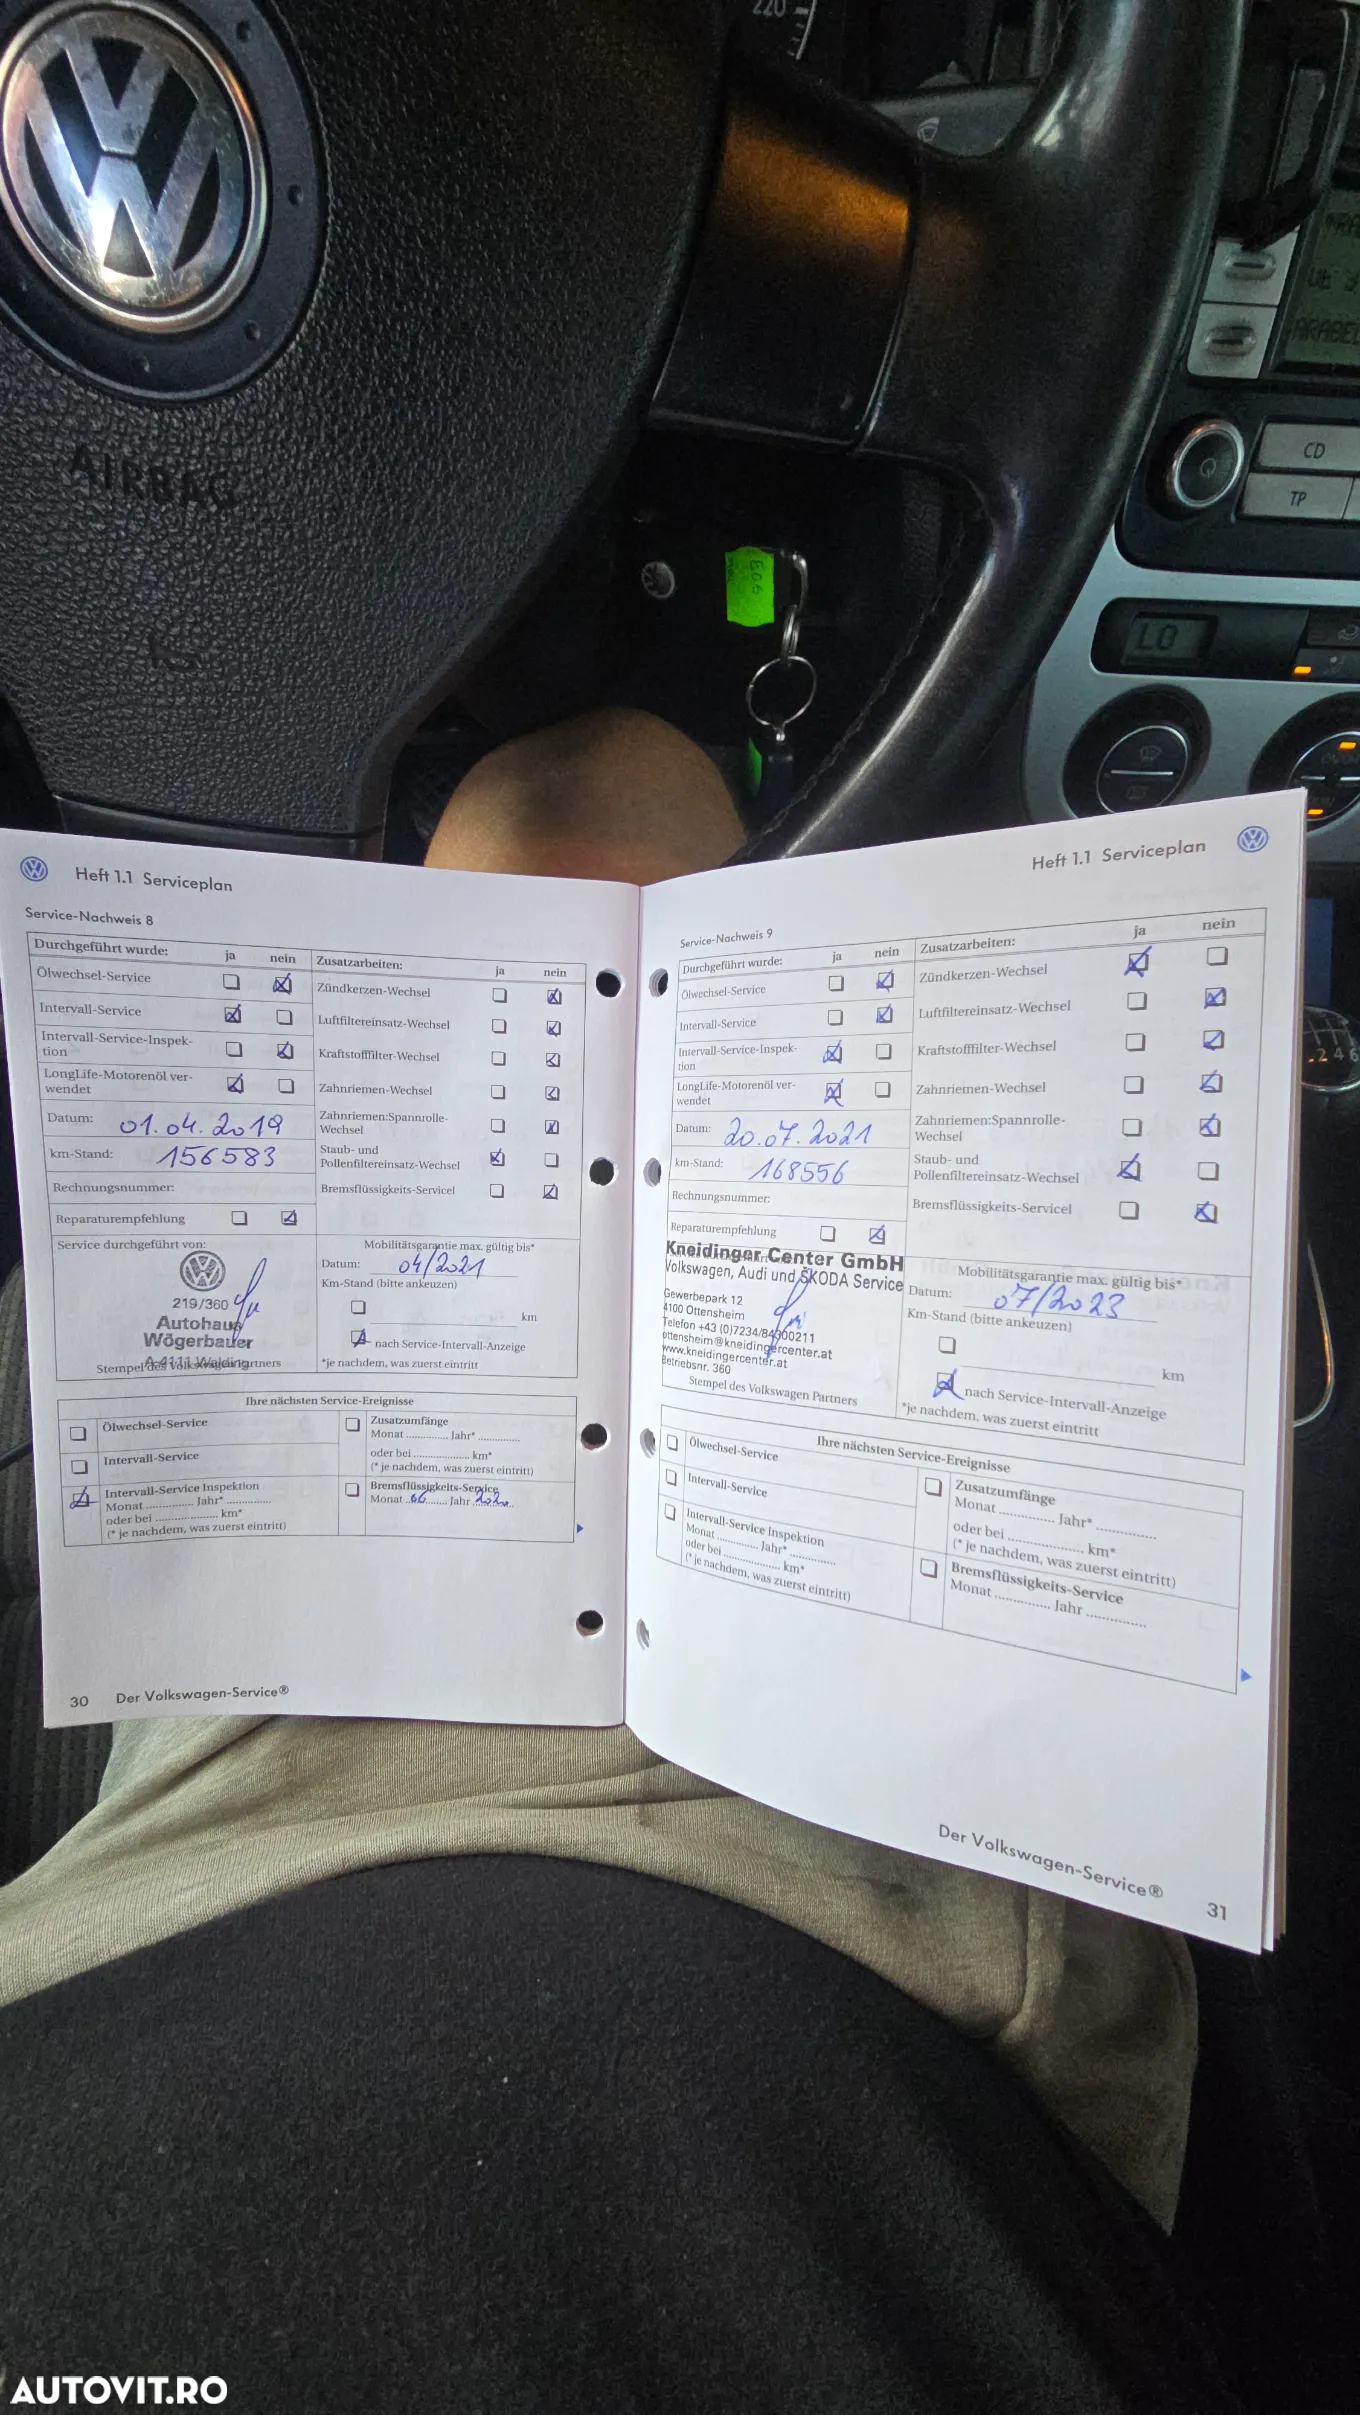 220
AIRBAG
CD
TP
LO
Heft 1.1 Serviceplan
Service-Nachweis 8
Durchgeführt wurde: ja nein
Ölwechsel-Service
Intervall-Service
Intervall-Service-Inspek-
tion
LongLife-Motorenöl ver-
wendet
Datum: 01.04.2019
km-Stand: 156583
Rechnungsnummer:
Reparaturempfehlung
Zusatzarbeiten: ja nein
Zündkerzen-Wechsel
Luftfiltereinsatz-Wechsel
Kraftstofffilter-Wechsel
Zahnriemen-Wechsel
Zahnriemen:Spannrolle-
Wechsel
Staub- und
Pollenfiltereinsatz-Wechsel
Bremsflüssigkeits-Servicel
Service durchgeführt von:
219/360
Autohaus
Wögerbauer
A-4111 Walding
Stempel des Volkswagen Partners
Mobilitätsgarantie max. gültig bis*
Datum: 04/2021
Km-Stand (bitte ankeuzen)
km
nach Service-Intervall-Anzeige
*je nachdem, was zuerst eintritt
Ihre nächsten Service-Ereignisse
Ölwechsel-Service
Intervall-Service
Intervall-Service Inspektion
Monat .............. Jahr* ..............
oder bei .................... km*
(* je nachdem, was zuerst eintritt)
Zusatzumfänge
Monat .............. Jahr* ..............
oder bei .................... km*
(* je nachdem, was zuerst eintritt)
Bremsflüssigkeits-Service
Monat 06 Jahr 2020
30 Der Volkswagen-Service®
Heft 1.1 Serviceplan
Service-Nachweis 9
Durchgeführt wurde: ja nein
Ölwechsel-Service
Intervall-Service
Intervall-Service-Inspek-
tion
LongLife-Motorenöl ver-
wendet
Datum: 20.07.2021
km-Stand: 168556
Rechnungsnummer:
Reparaturempfehlung
Zusatzarbeiten: ja nein
Zündkerzen-Wechsel
Luftfiltereinsatz-Wechsel
Kraftstofffilter-Wechsel
Zahnriemen-Wechsel
Zahnriemen:Spannrolle-
Wechsel
Staub- und
Pollenfiltereinsatz-Wechsel
Bremsflüssigkeits-Servicel
Kneidinger Center GmbH
Volkswagen, Audi und ŠKODA Service
Gewerbepark 12
4100 Ottensheim
Telefon +43 (0)7234/84300211
ottensheim@kneidingercenter.at
www.kneidingercenter.at
Betriebsnr. 360
Stempel des Volkswagen Partners
Mobilitätsgarantie max. gültig bis*
Datum: 07/2023
Km-Stand (bitte ankeuzen)
km
nach Service-Intervall-Anzeige
*je nachdem, was zuerst eintritt
Ihre nächsten Service-Ereignisse
Ölwechsel-Service
Intervall-Service
Intervall-Service Inspektion
Monat .............. Jahr* ..............
oder bei .................... km*
(* je nachdem, was zuerst eintritt)
Zusatzumfänge
Monat .............. Jahr* ..............
oder bei .................... km*
(* je nachdem, was zuerst eintritt)
Bremsflüssigkeits-Service
Monat .............. Jahr ..............
Der Volkswagen-Service®
31
2 4 6
AUTOVIT.RO